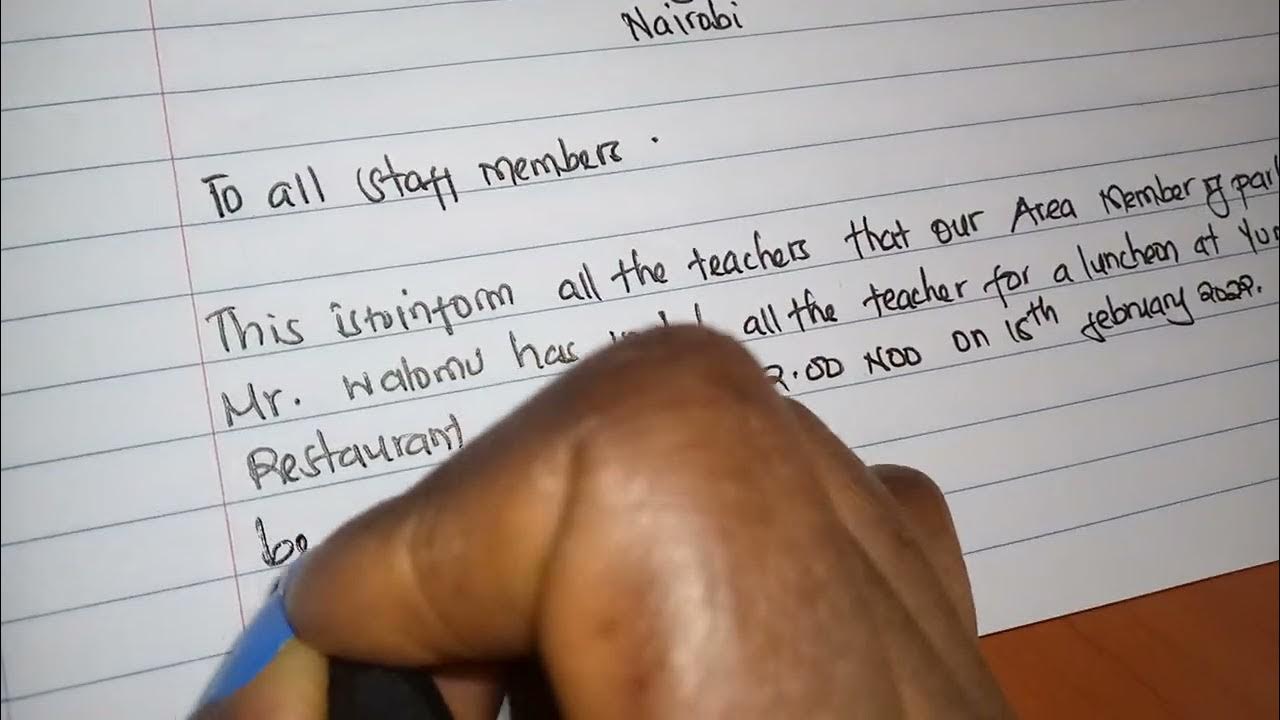 Nairobi
To all staff members.
This is to inform all the teachers that our Area Member of
Mr. Walomu has all the teacher for a luncheon at
Restaurant 2.00 NOO on 15th february 2022.
be